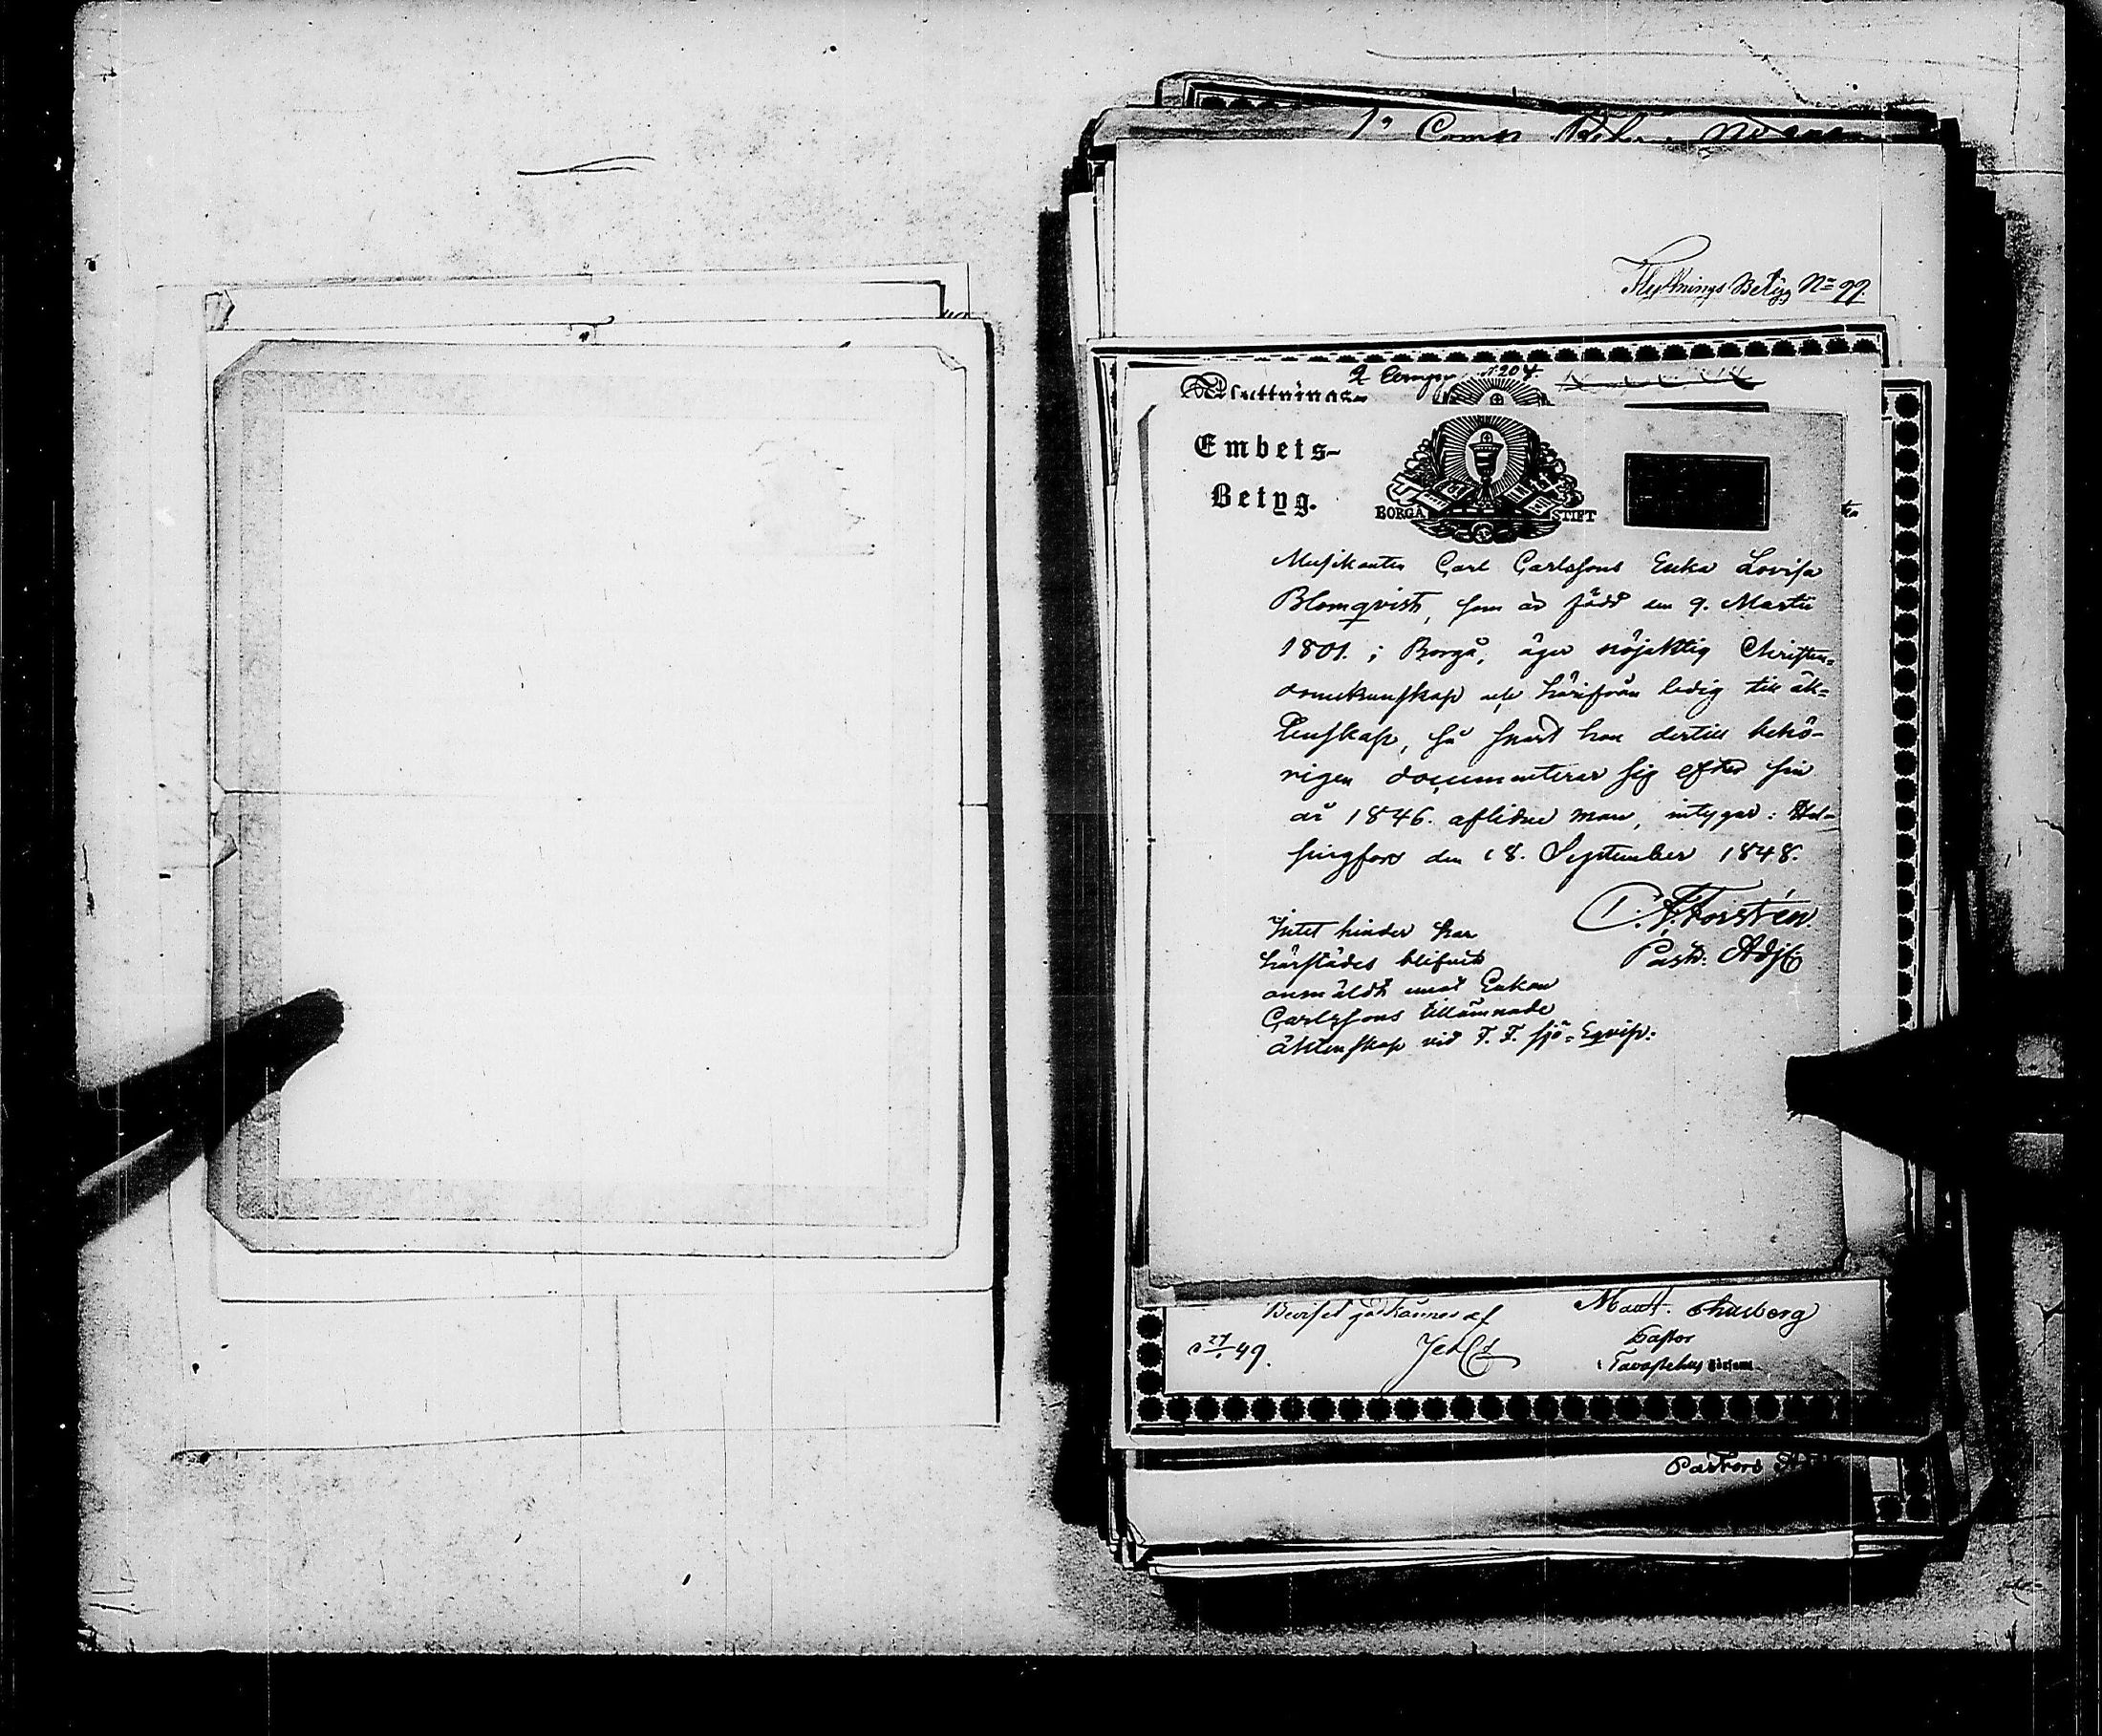 1º Comp
Flyttnings Betyg Nº 99.
2 Comp. Nº 204
Flyttnings-
Embets-
Betyg.
BORGÅ STIFT
Musikanten Carl Carlssons Enka Lovisa
Blomqvist, som är född den 9. Martii
1801. i Borgå, äger nöjaktig Christen-
domskunskap och härifrån ledig till äk-
tenskap, så snart hon dertill behö-
rigen documenterar sig efter sin
år 1846. aflidne man, intygar: Hel-
singfors den 18. September 1848.
C. F. Forstén.
Past. Adj.
Intet hinder har
härstädes blifvit
anmäldt emot Enkan
Carlssons tillämnade
äktenskap vid F. F. Sjö-Eqvip:
Beviset godkännes af
27/1 49.
Pastor
i Tavastehus
Pastors